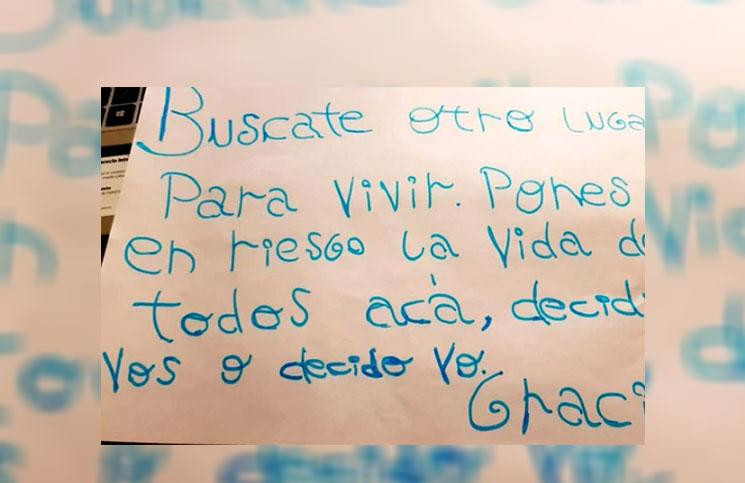 Buscate otro luga
Para vivir. Pones
en riesgo la vida d
todos acá, decid
vos o decido yo.
Graci